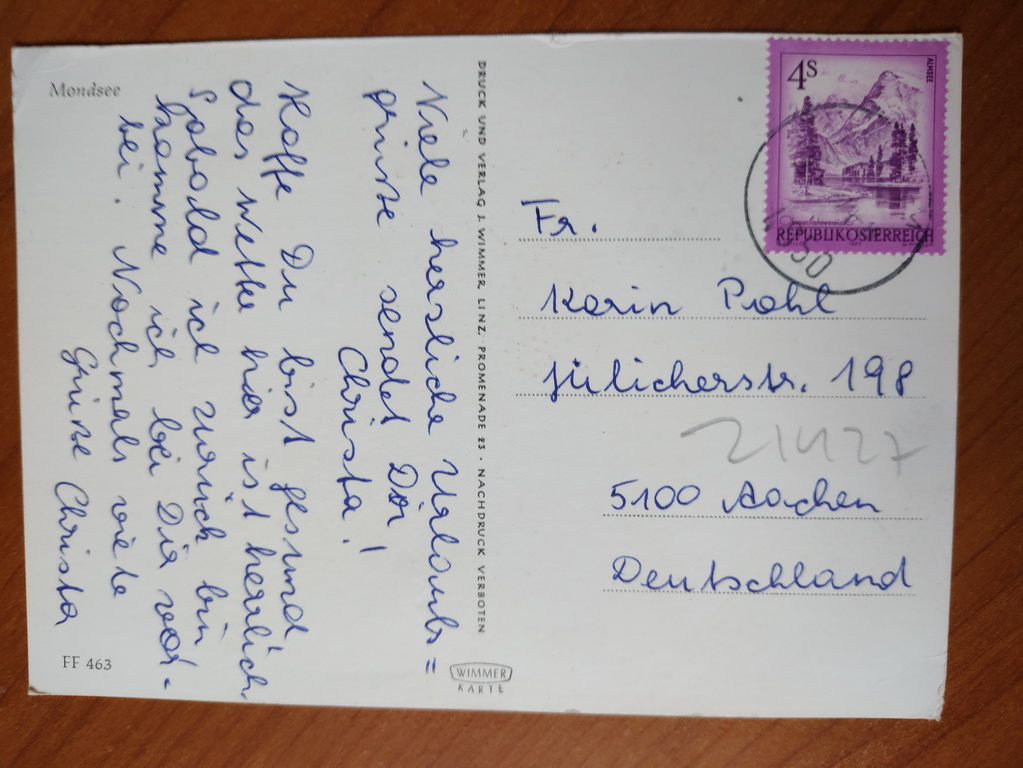 Mondsee
Viele herzliche Urlaubs=
grüsse sendet Dir
Christa!
Hoffe Du bist gesund,
das Wetter hier ist herrlich.
Sobald ich zurück bin
komme ich bei Dir vor-
bei. Nochmals viele
Grüsse Christa
FF 463
DRUCK UND VERLAG J. WIMMER, LINZ, PROMENADE 23 · NACHDRUCK VERBOTEN
WIMMER
KARTE
4S
ALMSEE
REPUBLIK ÖSTERREICH
Fr.
Karin Pohl
Jülicherstr. 198
21427
5100 Aachen
Deutschland